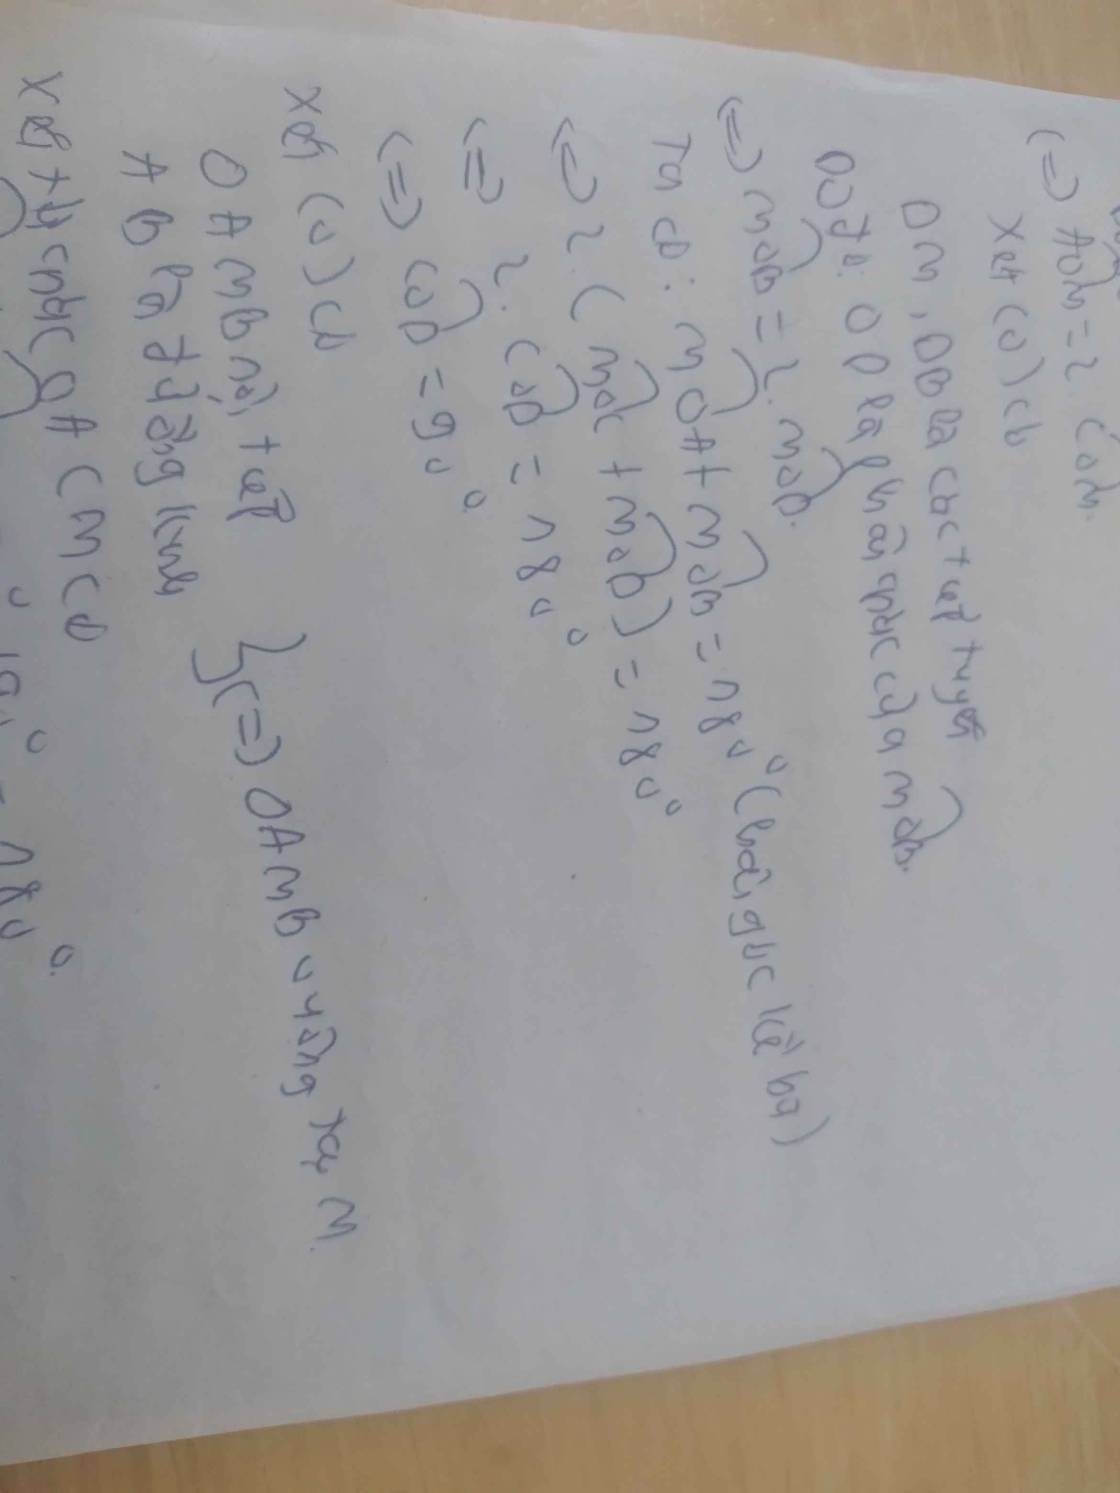 (=) AOM = 2. COM.
Xét (O) có
DM, DB là các tiếp tuyến
Do đó: OD là phân giác của MOB.
(=) MOB = 2. MOD.
Ta có: MOA + MOB = 180° (hai góc kề bù)
(=) 2. (MOC + MOD) = 180°
(=) 2. COD = 180°
(=) COD = 90°.
Xét (O) có
∆AMB nội tiếp
AB là đường kính
} (=) ∆AMB vuông tại M.
Xét tứ giác OACM có
= 180°.